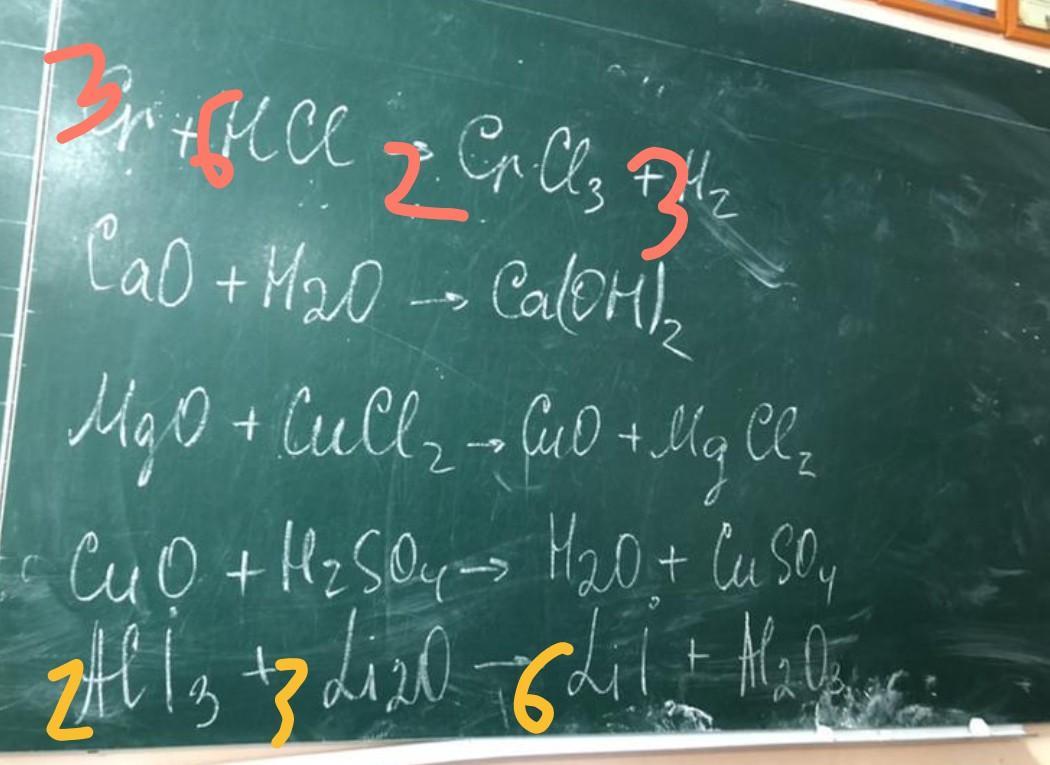 3Cr + 6HCl → 2CrCl₃ + 3H₂
CaO + H2O → Ca(OH)₂
MgO + CuCl₂ → CuO + MgCl₂
CuO + H₂SO₄ → H2O + CuSO₄
2AlI₃ + 3Li2O → 6LiI + Al₂O₃